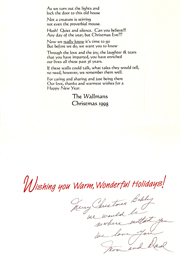 As we turn out the lights and
lock the door to this old house
Not a creature is stirring
not even the proverbial mouse.
Hush! Quiet and silence. Can you believe?!
Any day of the year; but Christmas Eve???
Now we really know it's time to go
But before we do, we want you to know
Through the love and the joy, the laughter & tears
that you have imparted, you have enriched
our lives all these past 36 years.
If these walls could talk, what tales they would tell,
no need, however, we remember them well.
For caring and sharing and just being there
Our love, thanks and warmest wishes for a
Happy New Year.
The Wallmans
Christmas 1993
Wishing you Warm, Wonderful Holidays!
Merry Christmas
we would be
nowhere without you
we love you
Mom and Dad